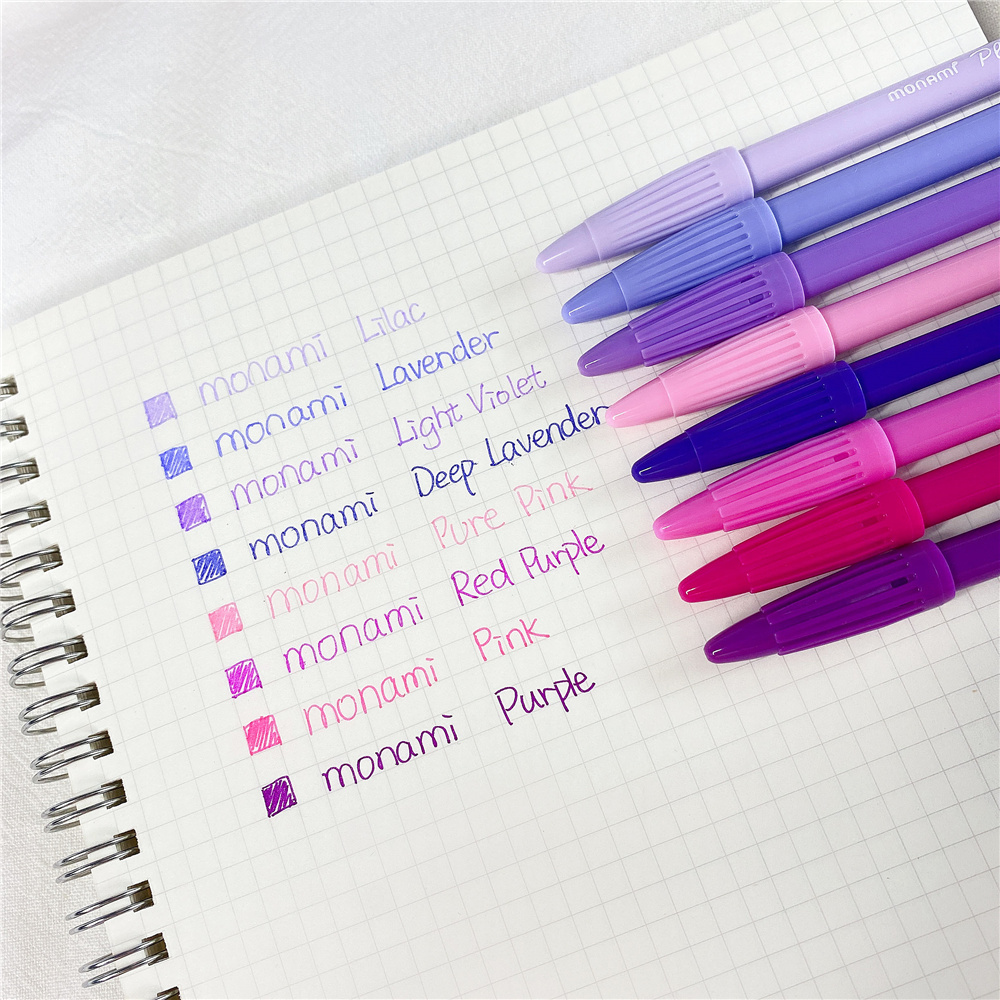 monami
monami Lilac
monami Lavender
monami Light Violet
monami Deep Lavender
monami Pure Pink
monami Red Purple
monami Pink
monami Purple